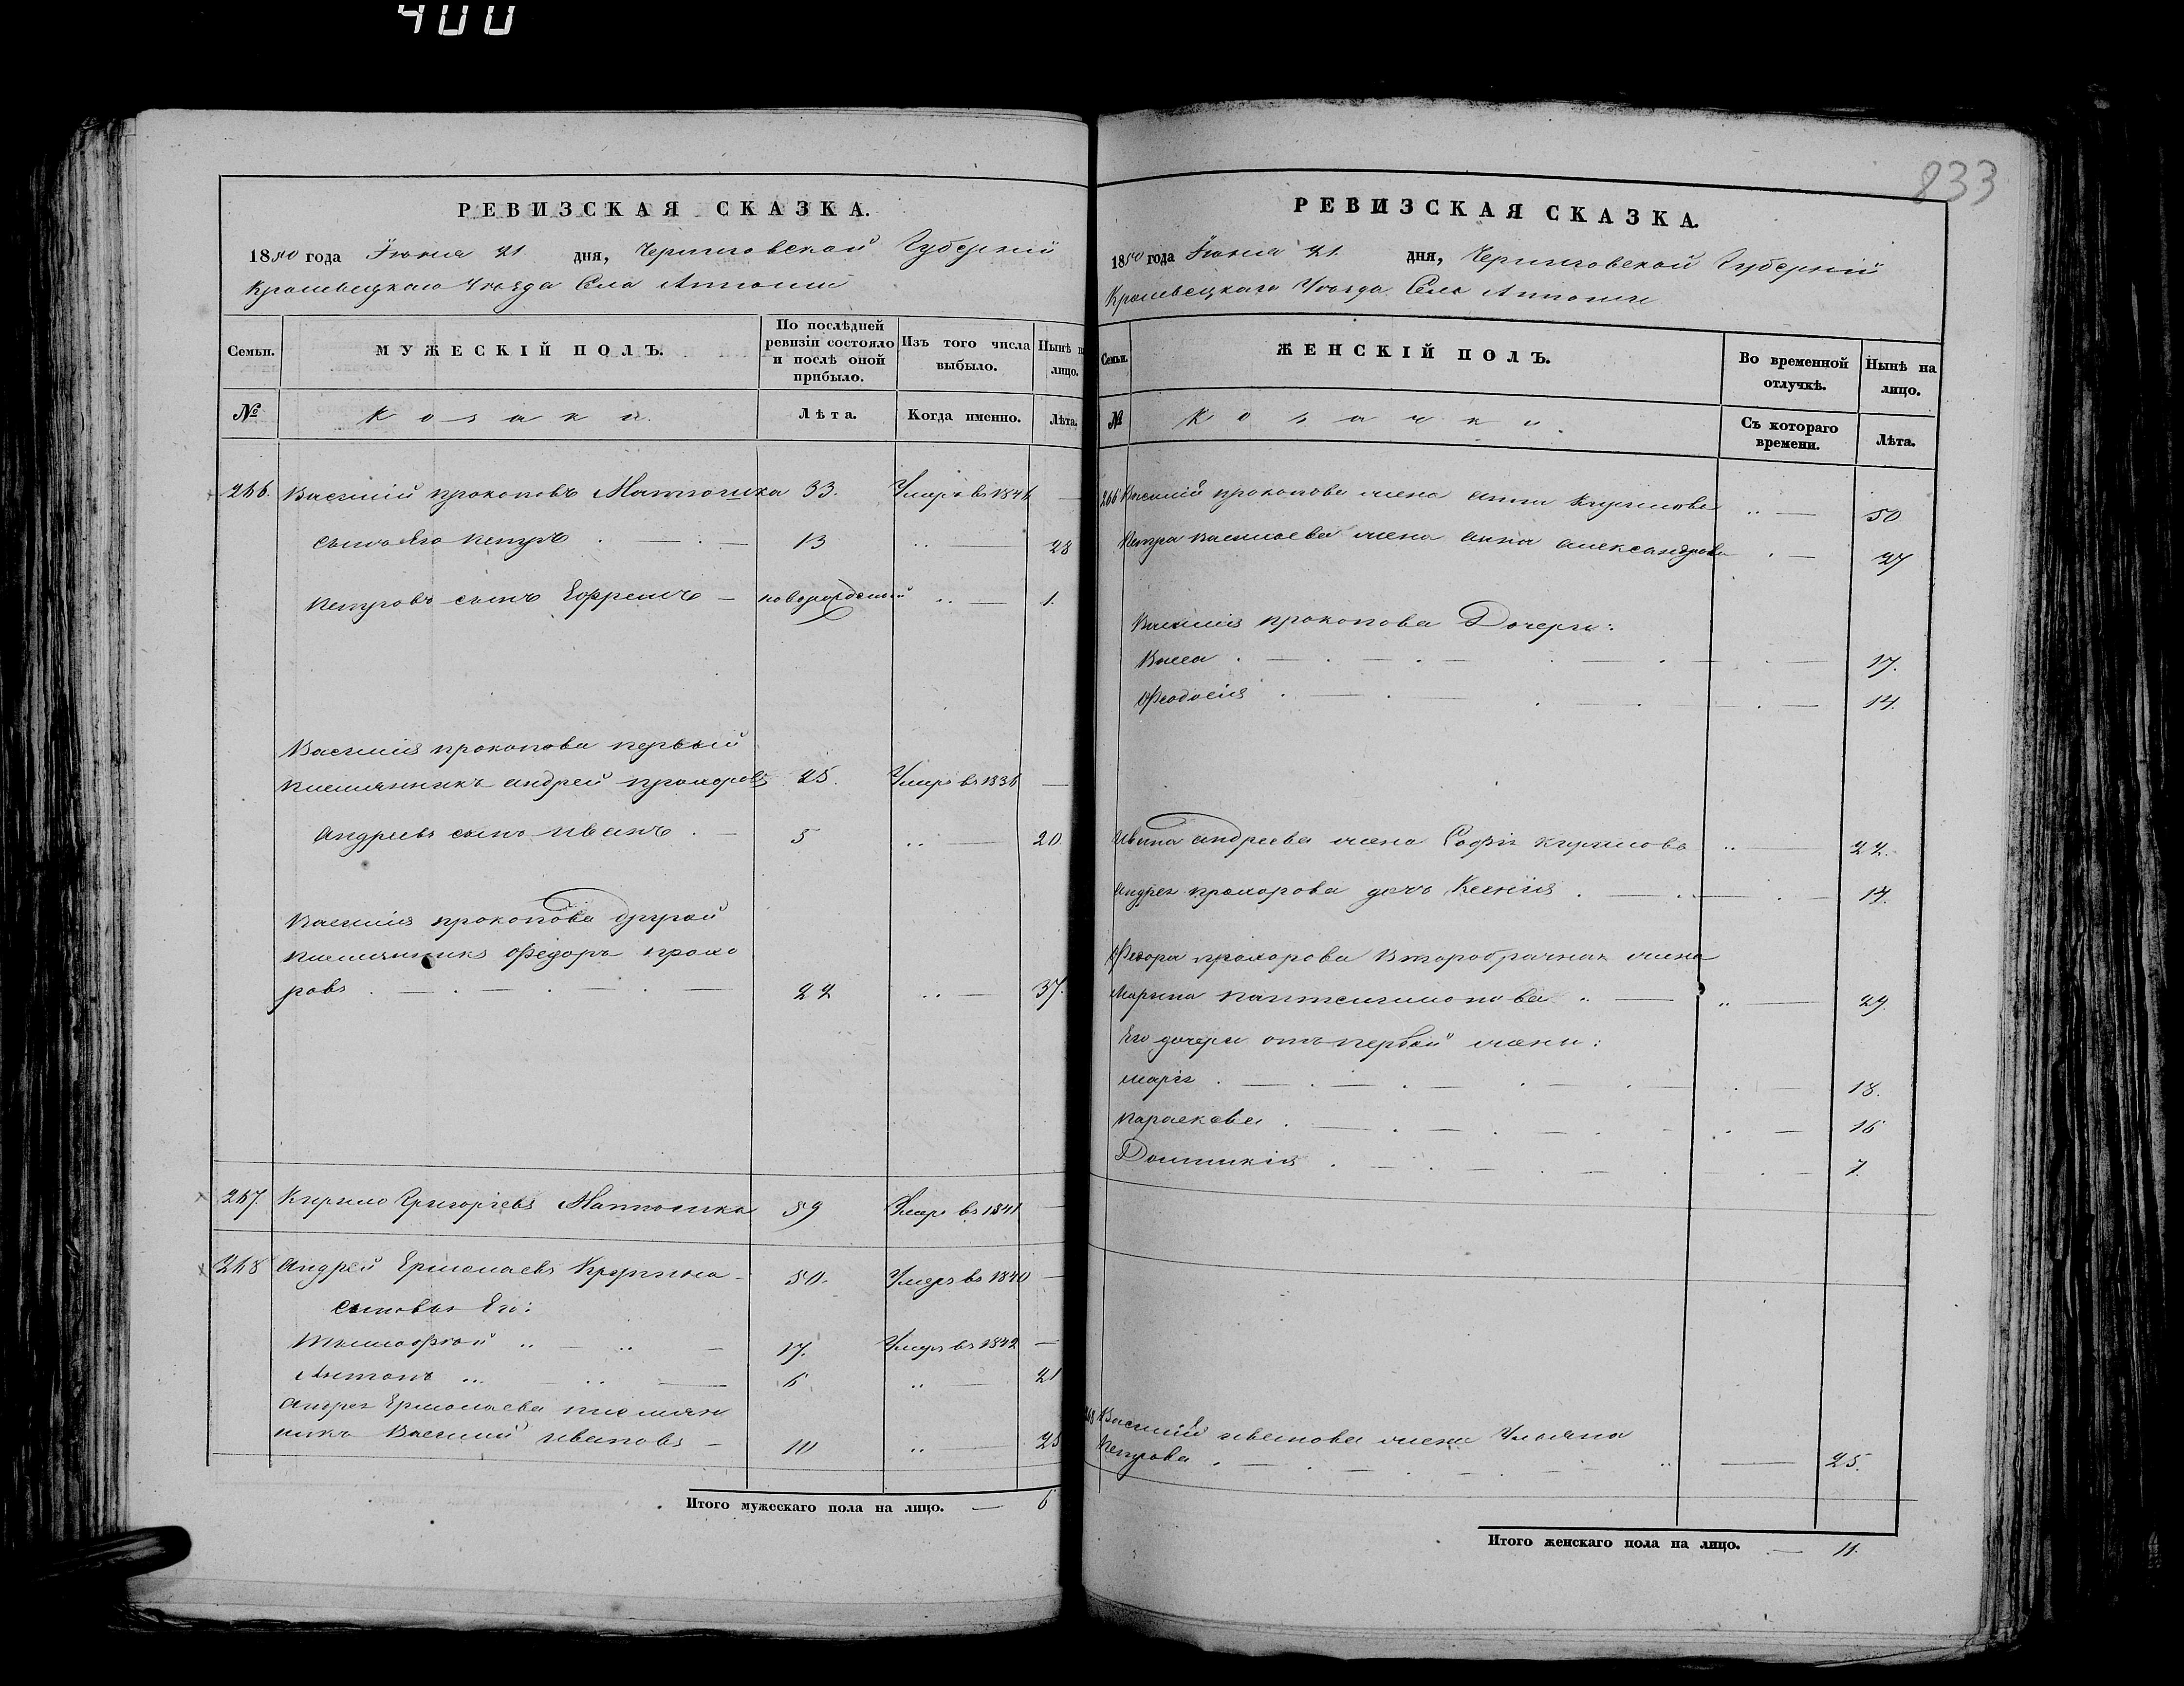 400
833
РЕВИЗСКАЯ СКАЗКА.
1850 года Іюня 21 дня, Черниговской Губерніи
Кролевецкаго Уѣзда Села
Семьи.
МУЖЕСКІЙ ПОЛЪ.
По послѣдней ревизіи состояло и послѣ оной прибыло.
Изъ того числа выбыло.
Нынѣ н лицо.
№
Козаки.
Лѣта.
Когда именно.
Лѣта.
266. Василій Прокоповъ Матюшка 33. Умеръ въ 1846 —
Сынъ Его Петръ . — . — 13 .. — 28
Петровъ сынъ Ефремъ — новорожденый .. — 1.
Василія Прокопова первый
племянникъ Андрей Прохоровъ 25. Умеръ въ 1836 —
Андреевъ сынъ Иванъ . — 5 .. — 20
Василія Прокопова другой
племянникъ Федоръ Прохо
ровъ . — . — . — . — 22 .. — 37.
267. Кирило Григоріевъ Матюшка 59 Умеръ въ 1841 —
268 Андрей Ермолаевъ 50. Умеръ въ 1840 —
Сыновья Его:
Тимофѣй .. — .. — 17. Умеръ въ 1842 —
Антонъ .. — .. — 6 .. — 21
Андрея Ермолаева племян
никъ Василій Ивановъ — 10 .. — 25
Итого мужескаго пола на лицо. — 6
РЕВИЗСКАЯ СКАЗКА.
1850 года Іюня 21 дня, Черниговской Губерніи
Кролевецкаго Уѣзда Села
Семьи.
ЖЕНСКІЙ ПОЛЪ.
Во временной отлучкѣ.
Нынѣ на лицо.
№
Козачки.
Съ котораго времени.
Лѣта.
266 Василія Прокопова жена Анна Кирилова .. — 50
Петра Васильева жена Анна Александрова . — 27
Василія Прокопова Дочери:
Васса . — . — . — . . — . — 17.
Феодосія . — . — . — . — . — 14.
Ивана Андреева жена Софія Кирилова .. — 22.
Андрея Прохорова дочь Ксенія . — . — . — 17.
Федора Прохорова Второбрачная жена
Марина Пантелимонова .. — .. — 29.
Его дочери отъ первой жены:
Марія . — . — . — . — . — . — 18.
Параскева . — . — . — . — . — 16
Домникія . — . — . — . — . — 7.
268 Василія Иванова жена Ульяна
Петрова . — . — . — . — .. — 25.
Итого женскаго пола на лицо. — 11.